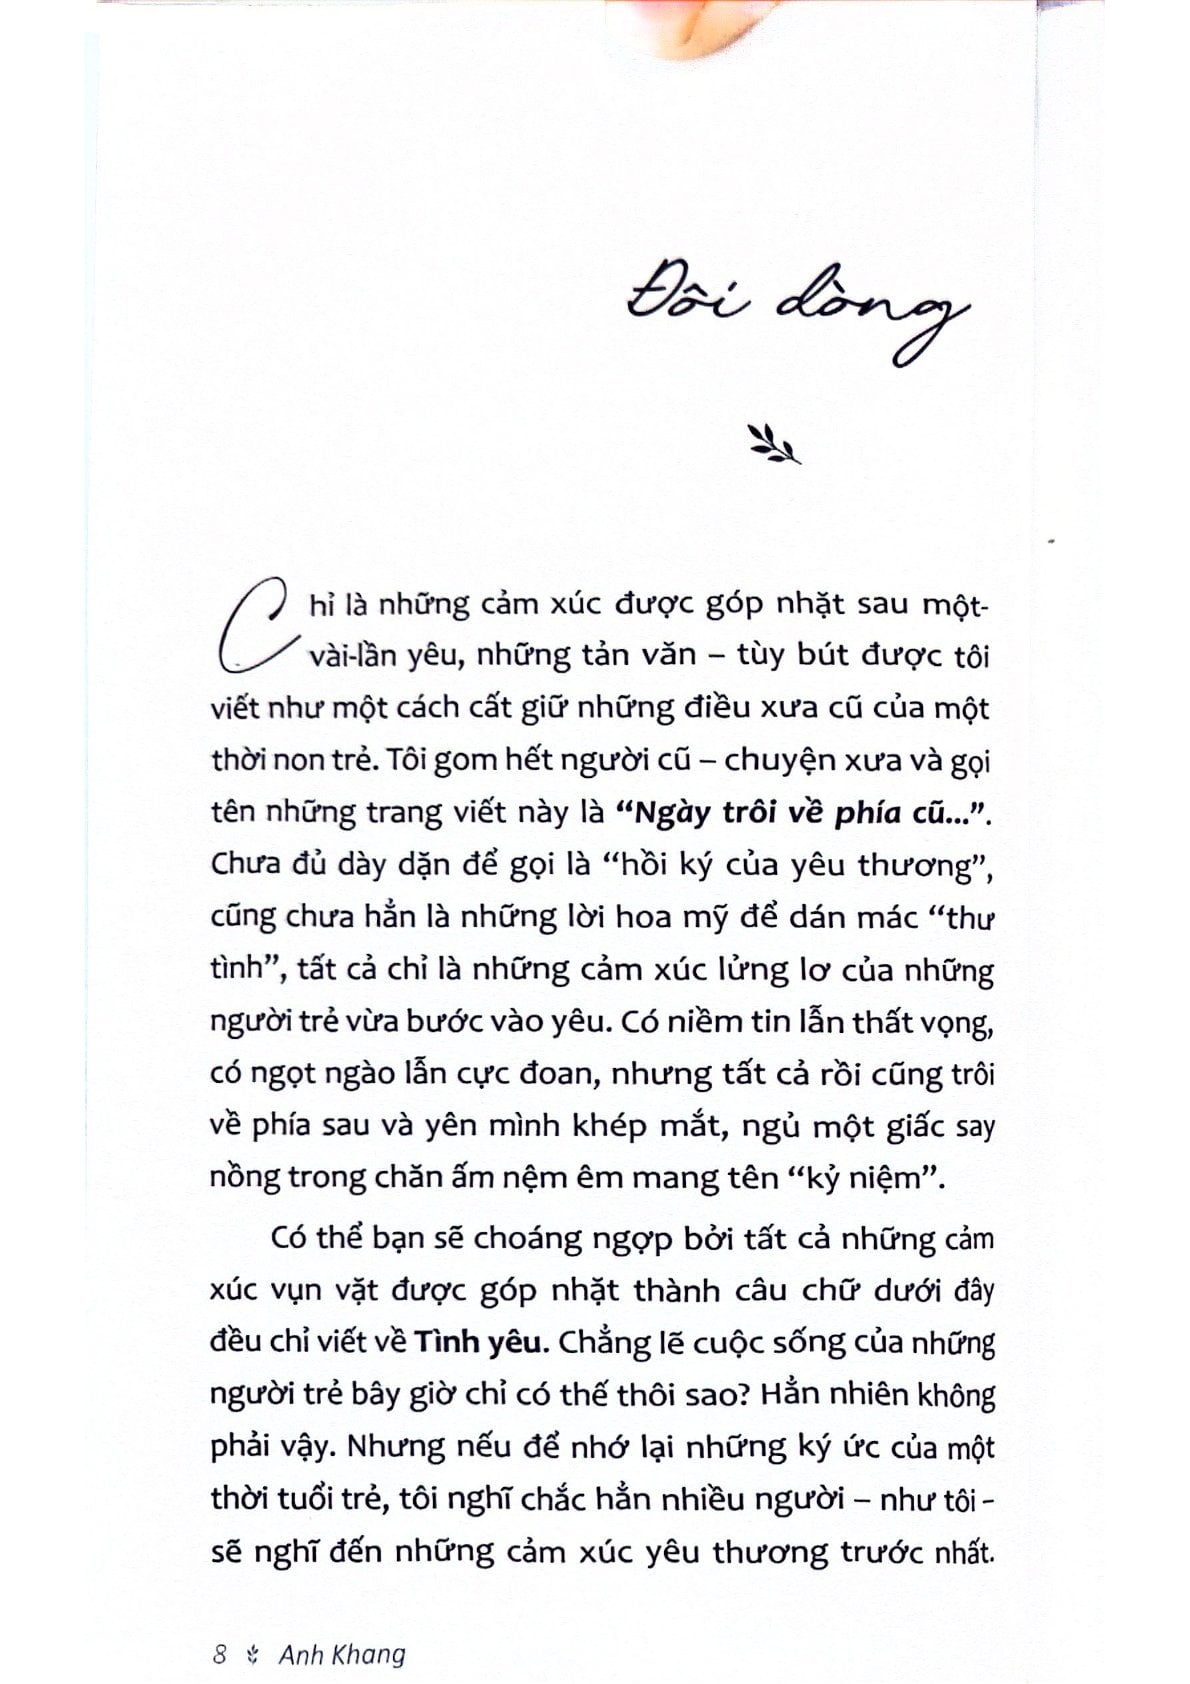 Đôi dòng
Chỉ là những cảm xúc được góp nhặt sau một-
vài-lần yêu, những tản văn – tùy bút được tôi
viết như một cách cất giữ những điều xưa cũ của một
thời non trẻ. Tôi gom hết người cũ – chuyện xưa và gọi
tên những trang viết này là “Ngày trôi về phía cũ...”.
Chưa đủ dày dặn để gọi là “hồi ký của yêu thương”,
cũng chưa hẳn là những lời hoa mỹ để dán mác “thư
tình”, tất cả chỉ là những cảm xúc lửng lơ của những
người trẻ vừa bước vào yêu. Có niềm tin lẫn thất vọng,
có ngọt ngào lẫn cực đoan, nhưng tất cả rồi cũng trôi
về phía sau và yên mình khép mắt, ngủ một giấc say
nồng trong chăn ấm nệm êm mang tên “kỷ niệm”.
Có thể bạn sẽ choáng ngợp bởi tất cả những cảm
xúc vụn vặt được góp nhặt thành câu chữ dưới đây
đều chỉ viết về Tình yêu. Chẳng lẽ cuộc sống của những
người trẻ bây giờ chỉ có thế thôi sao? Hẳn nhiên không
phải vậy. Nhưng nếu để nhớ lại những ký ức của một
thời tuổi trẻ, tôi nghĩ chắc hẳn nhiều người – như tôi –
sẽ nghĩ đến những cảm xúc yêu thương trước nhất.
8 Anh Khang